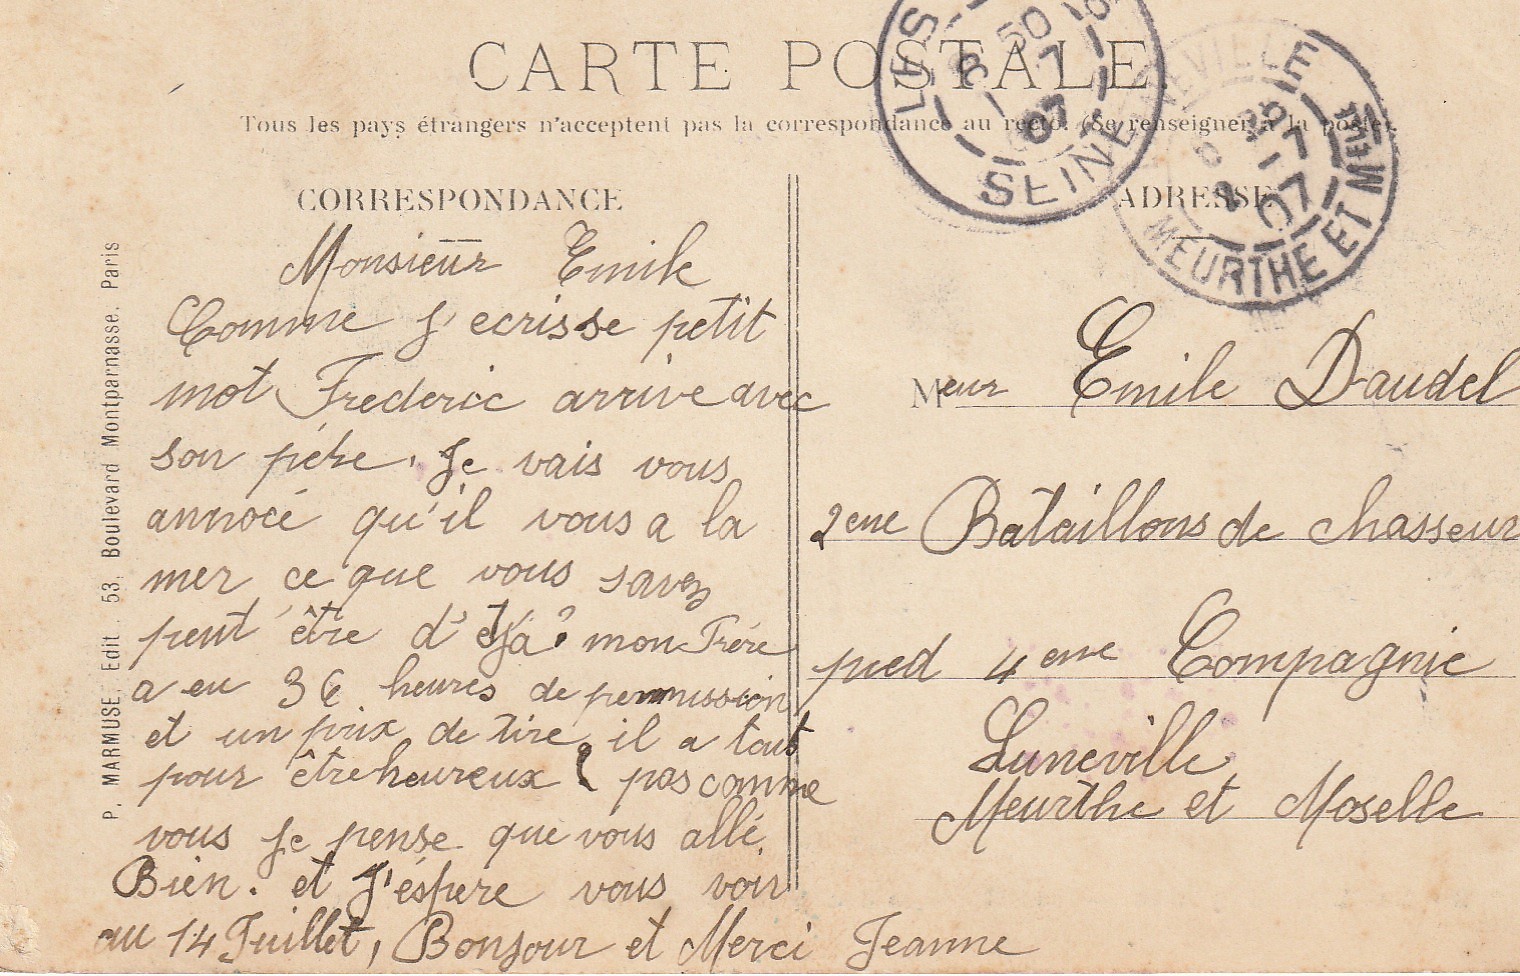 CARTE POSTALE.
Tous les pays étrangers n'acceptent pas la correspondance au recto. (Se renseigner à la poste).
CORRESPONDANCE
Monsieur Emile
Comme J'ecrisse petit
mot Frederic arrive avec
son pére. Je vais vous
annocé qu'il vous a la
mer ce que vous savez
peut être d'eja? mon Frére
a eu 36 heures de permission
et un prix de tire, il a tout
pour être heureux pas comme
vous Je pense que vous allé
Bien. et J'éspere vous voir
au 14 Juillet, Bonjour et Merci Jeanne
P. MARMUSE, Edit. 53, Boulevard Montparnasse, Paris
ADRESSE
Meur Emile Daudel
2eme Bataillons de chasseur
pied 4eme Compagnie
Luneville
Meurthe et Moselle
LAS
50
8
7
07
SEINE
NEVILLE
7
07
MEURTHE ET M